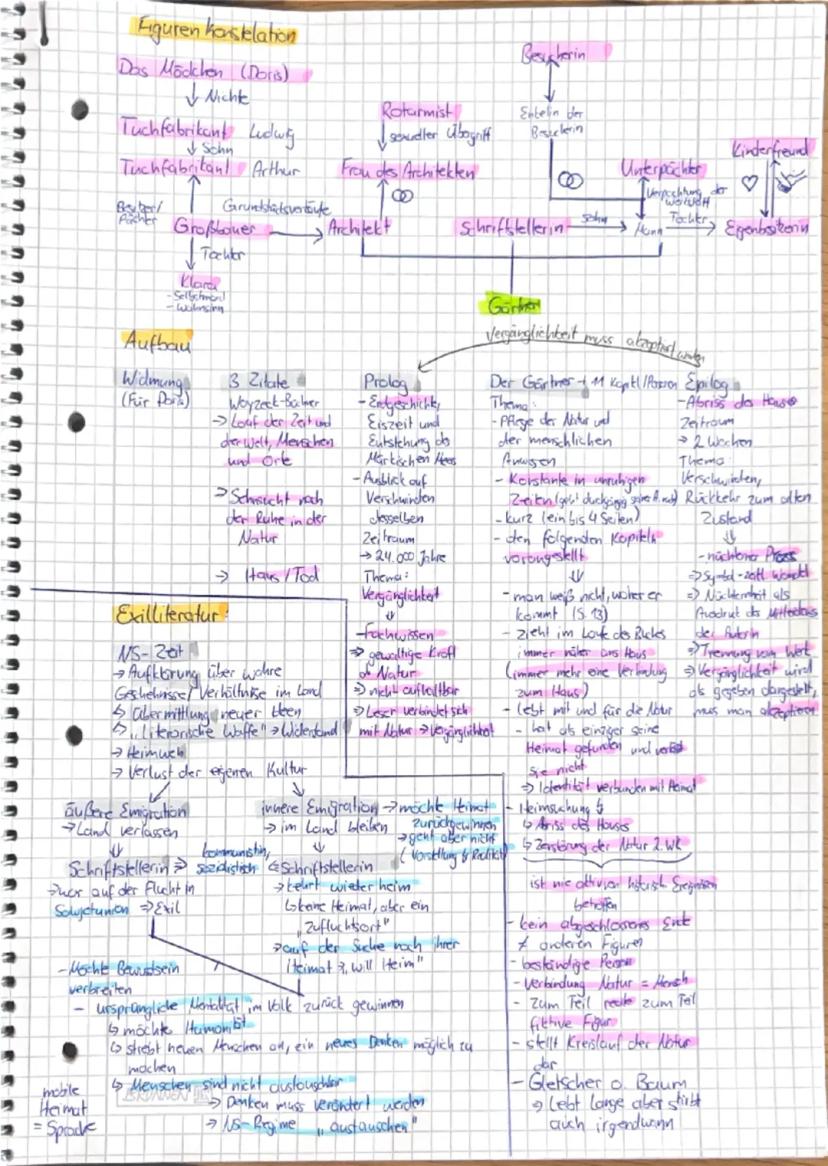 Figuren Konstelation
Das Mädchen (Doris)
Nichte
Tuchfabrikant Ludwig
Sohn
Tuchfabrikant Arthur
Besitzer/
Pächter
Grundstücksverkäufe
Großbauer
Tochter
Klara
- Selbstmord
- Wahnsinn
Rotarmist
sexueller Übgriff
Frau des Architekten
Architekt
Besucherin
Enkelin der
Besucherin
Unterpächter
Verpachtung der
Schriftstellerin
Sohn
Mann
Tochter
Kinderfreund
Eigenbesitzerin
Gärtner
Vergänglichkeit muss akzeptiert werden
Aufbau
Widmung
(Für Doris)
3 Zitate
Woyzeck-Büchner
→ Lauf der Zeit und
der Welt, Menschen
und Orte
→ Sehnsucht nach
der Ruhe in der
Natur
→ Haus/Tod
Prolog
- Erdgeschichte,
Eiszeit und
Entstehung des
Märkischen Meers
- Ausblick auf
Verschwinden
desselben
Zeitraum
→ 24.000 Jahre
Thema:
Vergänglichkeit
- Fachwissen
⇒ gewaltige Kraft
d. Natur
⇒ nicht aufhaltbar
⇒ Leser verbindet sich
mit Natur → Vergänglichkeit
Der Gärtner + 11 Kapitl/Person
Thema:
- Pflege der Natur und
der menschlichen
Anwesen
- Konstante in unruhigen
Zeiten (geht durchgängig seine A. nach)
- kurz (ein bis 4 Seiten)
- den folgenden Kapiteln
vorangestellt
- man weiß nicht, woher er
kommt (S. 13)
- zieht im Laufe des Buches
immer näher ans Haus
(immer mehr eine Verbindung
zum Haus)
- lebt mit und für die Natur
- hat als einziger seine
Heimat gefunden und verlässt
sie nicht
⇒ Identität verbunden mit Heimat
- Heimsuchung
↳ Abriss des Hauses
↳ Zerstörung der Natur 2. WK
ist nie aktiv von historisch Ereignissen
betroffen
- kein abgeschlossenes Ende
≠ anderen Figuren
- beständige Person
- Verbindung Natur = Mensch
- zum Teil reale zum Teil
fiktive Figur
- stellt Kreislauf der Natur
dar
- Gletscher o. Baum
⇒ lebt lange aber stirbt
auch irgendwann
Epilog
- Abriss des Hauses
Zeitraum
→ 2 Wochen
Thema:
Verschwinden,
Rückkehr zum alten
Zustand
- nüchterner Prozess
⇒ Symbol - zeitl. Wandel
⇒ Nüchternheit als
Ausdruck des Mitleidens
der Autorin
⇒ Trennung von Wert
⇒ Vergänglichkeit wird
als gegeben dargestellt,
mus man akzeptieren
Exilliteratur
NS-Zeit
→ Aufklärung über wahre
Geshehnisse/Verhältnise im Land
↳ Übermittlung neuer Ideen
↳ „Literarische Waffe" → Widerstand
→ Heimweh
→ Verlust der eigenen Kultur
äußere Emigration
→ Land verlassen
Schriftstellerin
→ war auf der Flucht in
Sowjetunion ⇒ Exil
kommunistin,
sozialistisch
innere Emigration
→ im Land bleiben
→ möchte Heimat
zurückgewinnen
→ geht aber nicht
(Vorstellung & Realität)
Schriftstellerin
→ kehrt wieder heim
↳ keine Heimat, aber ein
„Zufluchtsort"
→ auf der Suche nach ihrer
Heimat „I will Heim"
- Möchte Bewustsein
verbreiten
- ursprüngliche Mentalität im Volk zurück gewinnen
↳ möchte Humanität
↳ strebt neuen Menschen an, ein neues Denken möglich zu
machen
↳ Menschen sind nicht austauschbar
→ Denken muss verändert werden
→ NS-Regime „austauschen"
mobile
Heimat
= Sprache
BRUNNEN